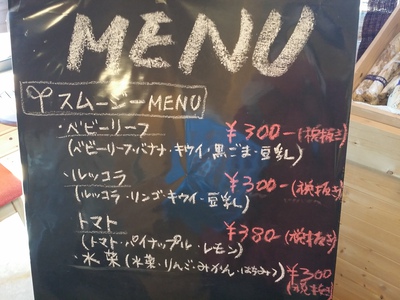 MENU
スムージーMENU
・ベビーリーフ ¥300-(税抜き)
(ベビーリーフ・バナナ・キウイ・黒ごま・豆乳)
・ルッコラ ¥300-(税抜き)
(ルッコラ・リンゴ・キウイ・豆乳)
トマト ¥380-(税抜き)
(トマト・パイナップル・レモン)
・水菜(水菜・りんご・みかん・はちみつ) ¥300
(税抜き)